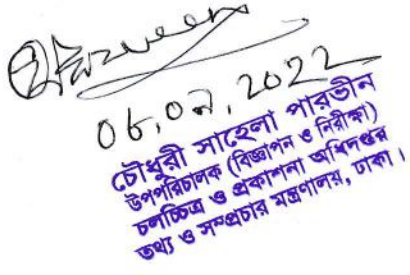 Parveen
06.09.2022
চৌধুরী সাহেলা পারভীন
উপপরিচালক (বিজ্ঞাপন ও নিরীক্ষা)
চলচ্চিত্র ও প্রকাশনা অধিদপ্তর
তথ্য ও সম্প্রচার মন্ত্রণালয়, ঢাকা।